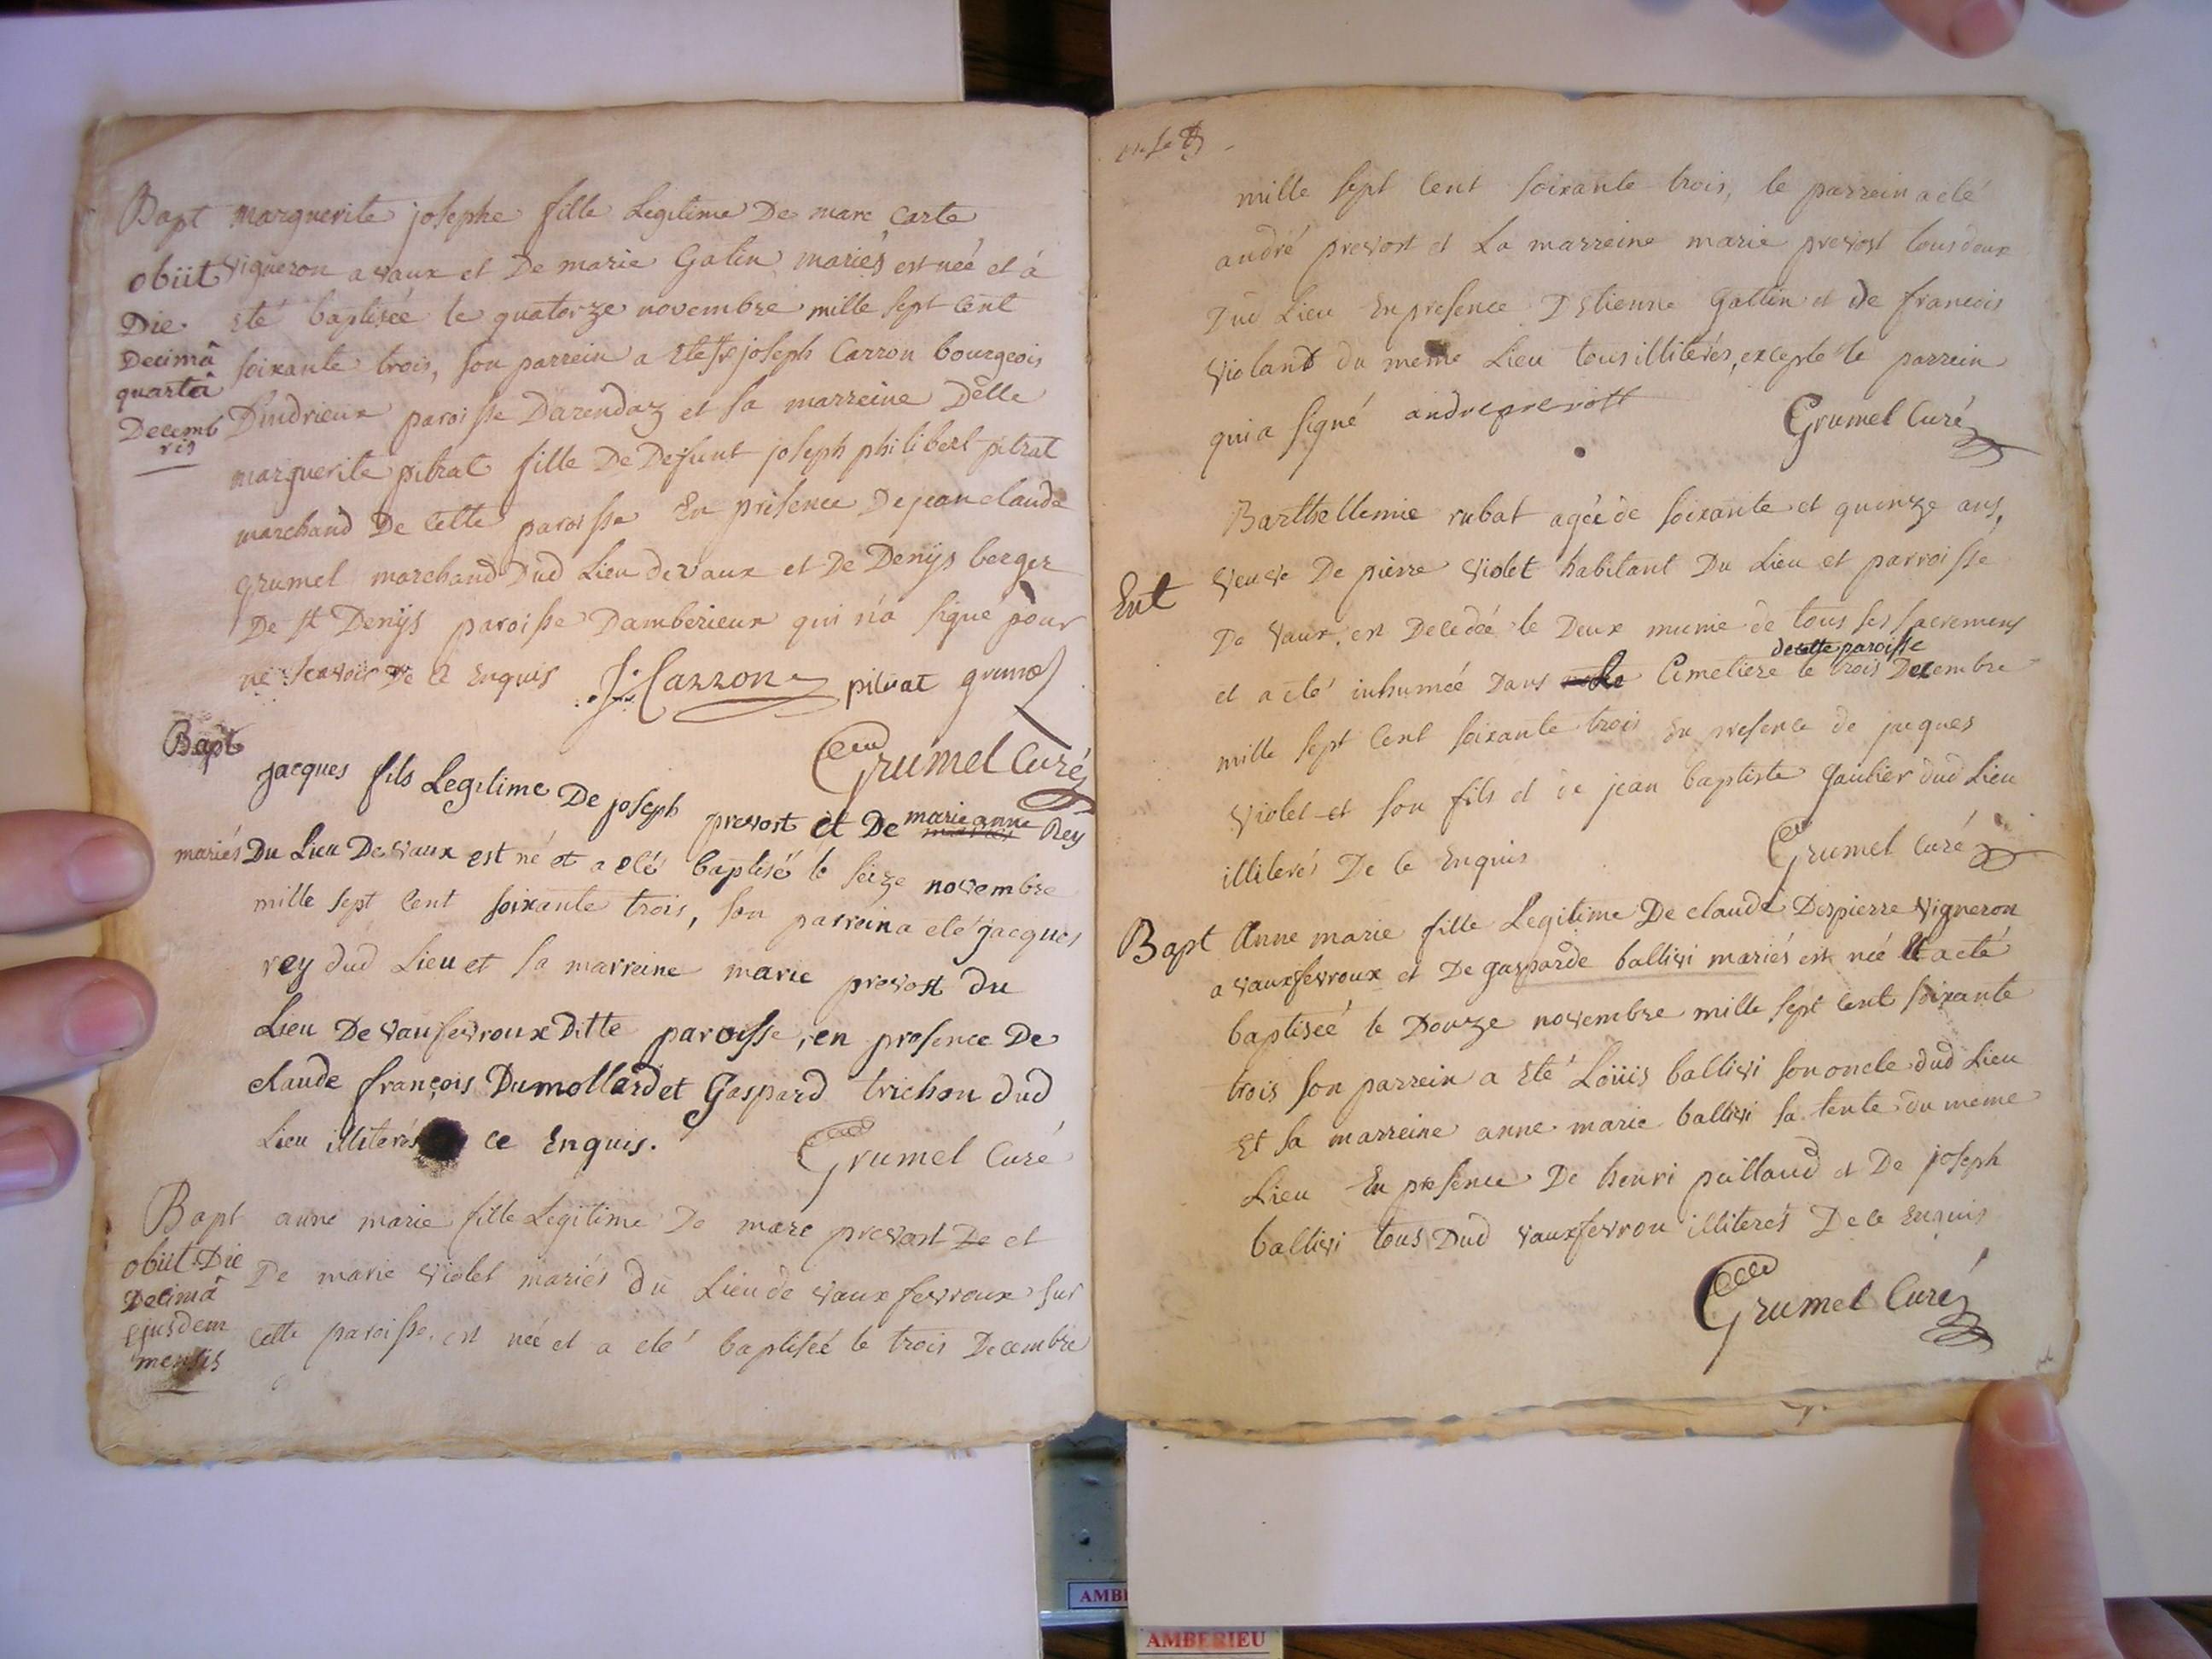 Bapt marguerite josephe fille Legitime De marc Carte
obiit vigneron a vaux et De marie Galin mariés est neé et à
Die eté baptiseé le quatorze novembre mille sept Cent
Decimâ soixante trois, son parrein a eté sr joseph Carron bourgeois
quartâ
Decemb Dindrieux paroisse Darendaz et sa marreine Delle
ris
marguerite pitrat fille De Defunt joseph philibert pitrat
marchand De Cette paroisse En présence De jean claude
grumel marchand Dud Lieu de vaux et De Denijs berger
De st Denijs paroisse Damberieux qui n'a signé pour
ne scavoir De Ce Enquis J: Carron pitrat grumel
Grumel Curé
Bapt
jacques fils Legitime De joseph prevost et De marie anne Rey
mariés Du Lieu De vaux est né et a eté baptisé le seize novembre
mille sept Cent soixante trois, son parrein a eté jacques
rey dud Lieu et sa marreine marie prevost du
Lieu De vaufevroux Ditte paroisse, en presence De
claude françois Dumollard et Gaspard trichon dud
Lieu illiterés ce Enquis.
Grumel Curé
Bapt anne marie fille Legitime De marc prevost De et
obiit Die De marie violet mariés du Lieu de vaux fevroux sur
Decimâ
ejusdem Cette paroisse, est neé et a eté baptiseé le trois Decembre
mensis
mille sept Cent soixante trois, le parrein a eté
andré prevost et La marreine marie prevost tous deux
Dud Lieu En presence D'Etienne Gallin et de francois
violand du meme Lieu tous illiterés, excepte le parrein
qui a signé andre prevost Grumel Curé
Barthellemie rubat ageé de soixante et quinze ans,
veuve De pierre violet habitant Du Lieu et parroisse
Ent
De vaux, est Decedeé le Deux munie de tous ses sacremens
de cette paroisse
et a eté inhumeé Dans le Cimetiere le trois Decembre
mille sept Cent soixante trois En presence de jacques
violet et son fils et de jean baptiste gaulier dud Lieu
illiterés De Ce Enquis Grumel Curé
Bapt Anne marie fille Legitime De claude Despierre vigneron
a vauxfevroux et De gasparde ballivi mariés est neé et a eté
baptiseé le Douze novembre mille sept Cent soixante
trois son parrein a eté Loüis ballivi son oncle dud Lieu
Et sa marreine anne marie ballivi sa tente du meme
Lieu En presence De henri paillaud et De joseph
ballivi tous Dud vauxfevrou illiterés De Ce Enquis
Grumel Curé
AMBERIEU